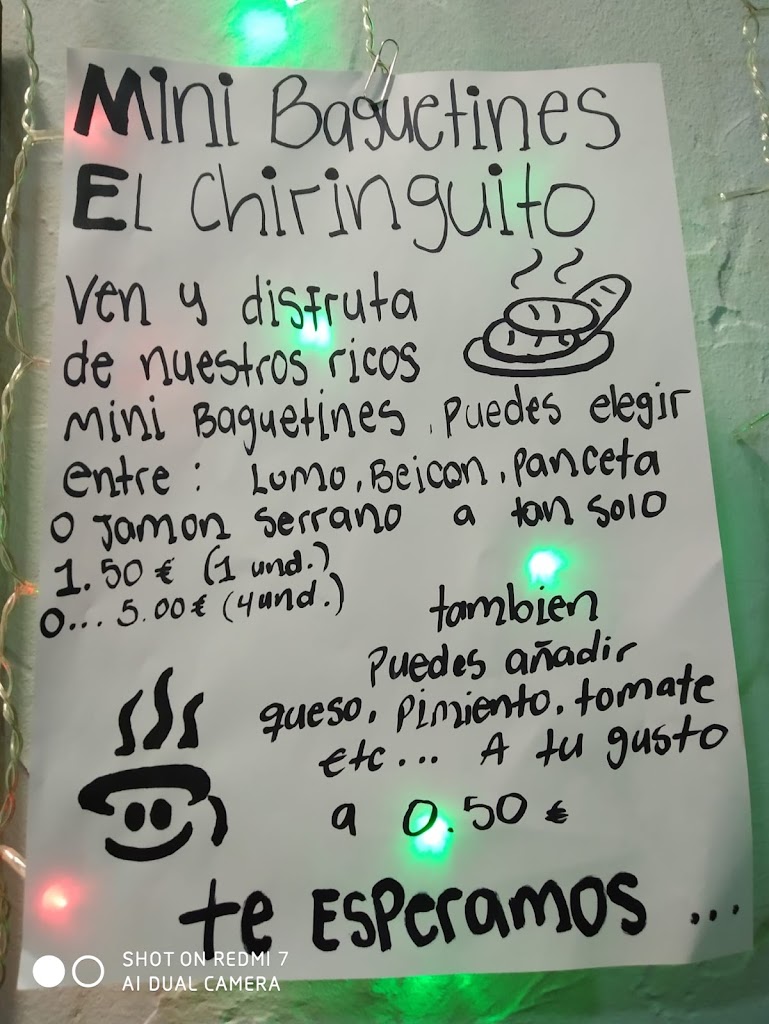 Mini Baguetines
El Chiringuito
Ven y disfruta
de nuestros ricos
mini Baguetines, puedes elegir
entre: Lomo, Beicon, panceta
o Jamon serrano a tan solo
1.50 € (1 und.)
o... 5.00 € (4 und.)
tambien
puedes añadir
queso, pimiento, tomate
etc... A tu gusto
a 0.50 €
te Esperamos...
SHOT ON REDMI 7
AI DUAL CAMERA